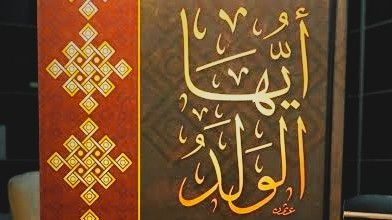 أَيُّهَا
الوَلَدُ